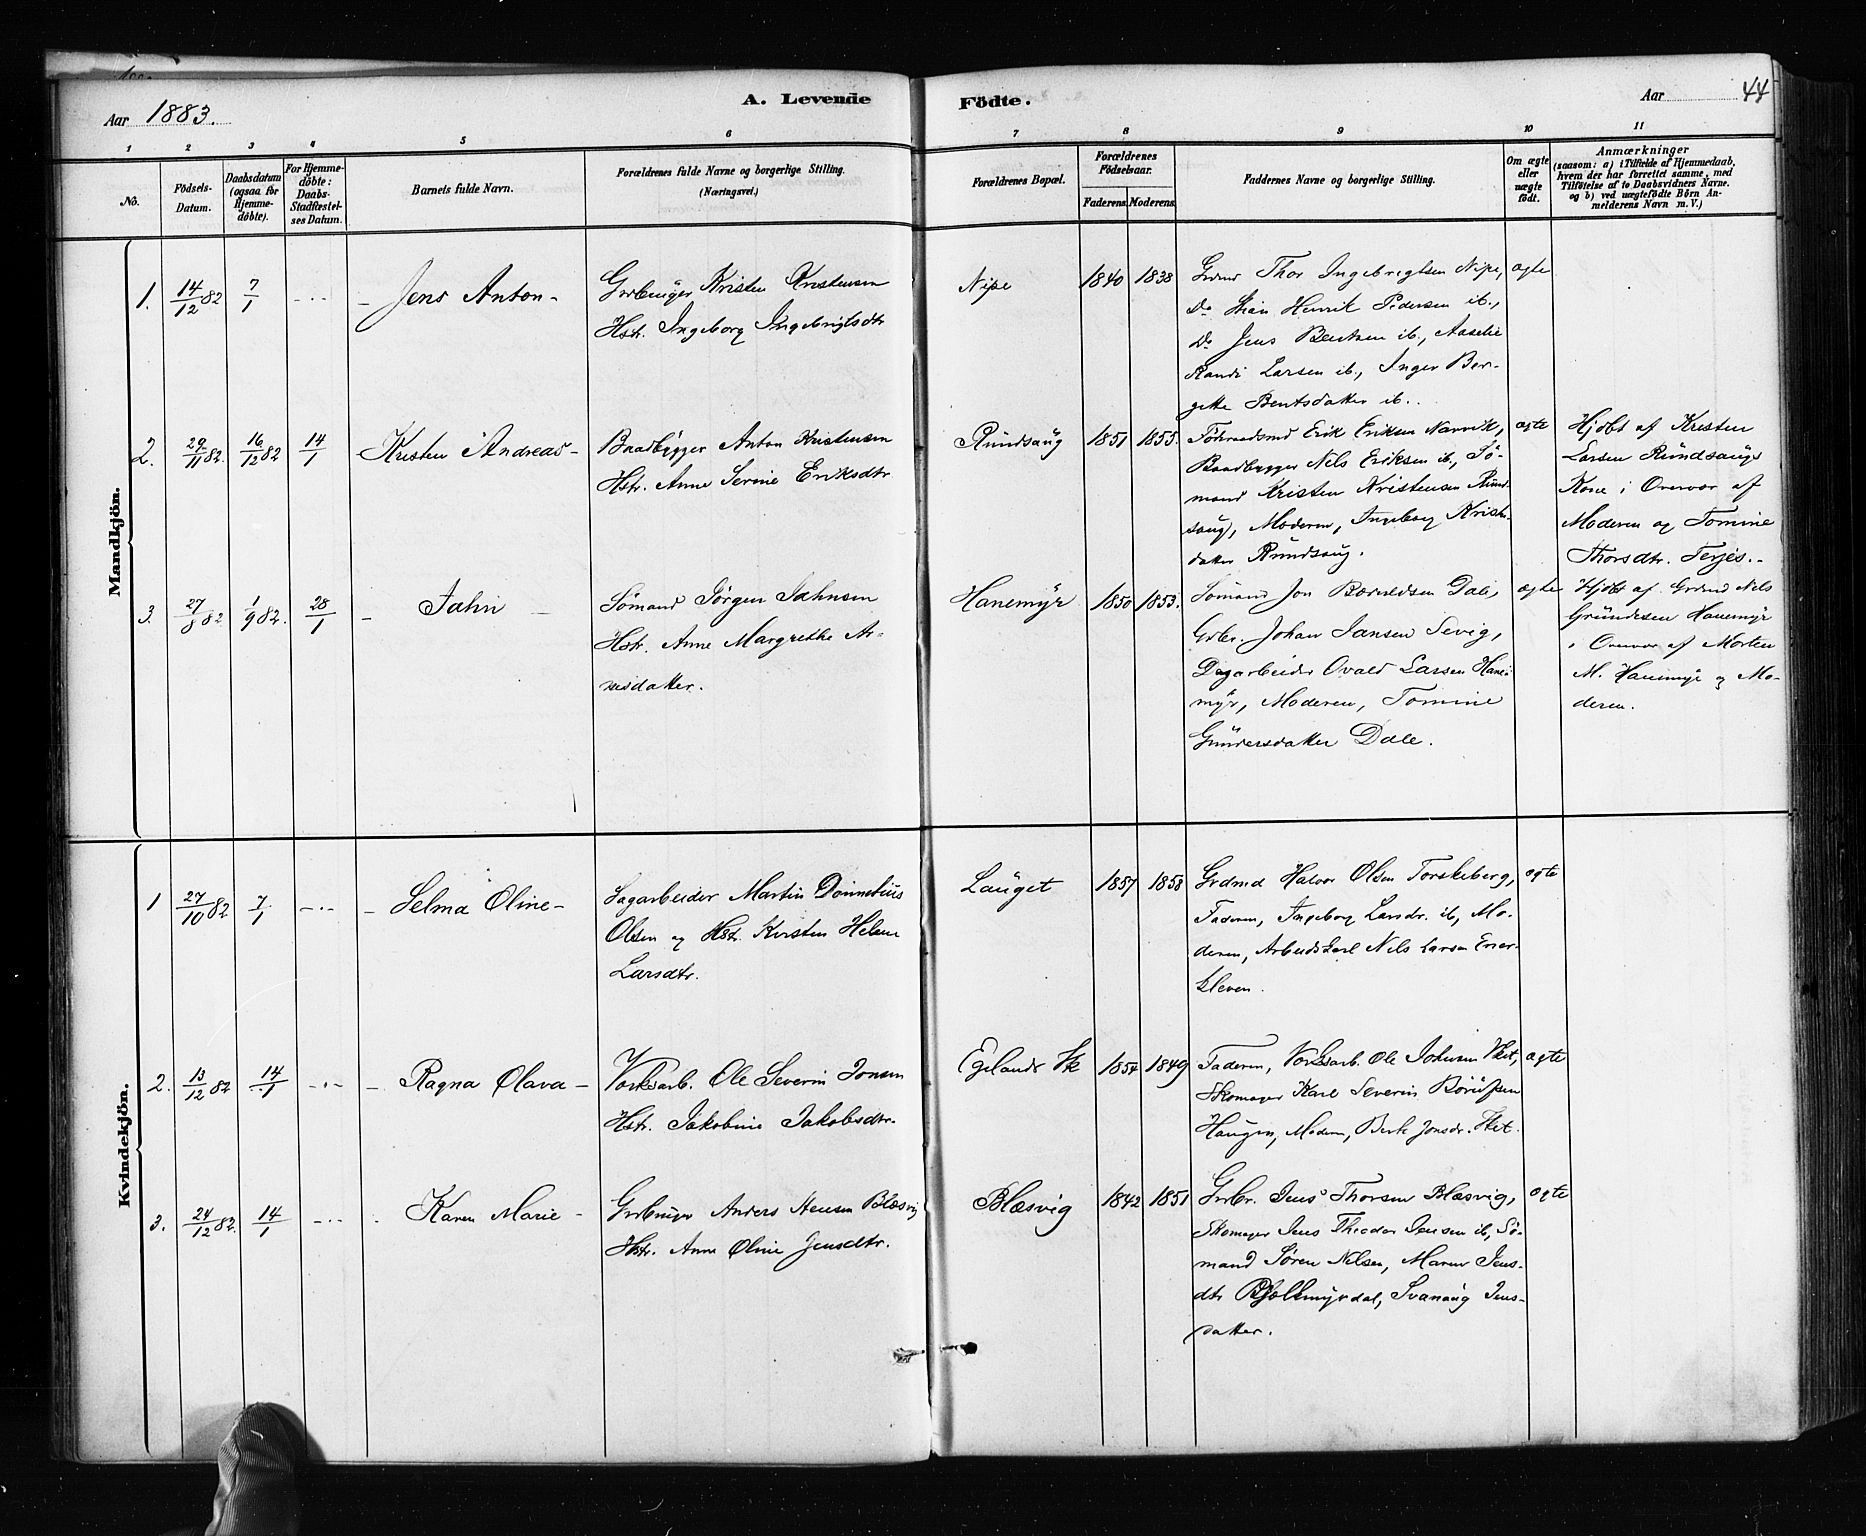 Aar 1883.
A. Levende
Födte.
Aar 44
1 2 3 4 5 6 7 8 9 10 11
No.
Födsels-
Datum.
Daabsdatum
(ogsaa for
Hjemme-
döbte).
For Hjemme-
döbte:
Daabs-
Stadfæstel-
ses Datum.
Barnets fulde Navn.
Forældrenes fulde Navne og borgerlige Stilling.
(Næringsvei.)
Forældrenes Bopæl.
Forældrenes
Födselsaar.
Faderens. Moderens.
Faddernes Navne og borgerlige Stilling.
Om ægte
eller
uægte
födt.
Anmærkninger
(saasom: a) i Tilfælde af Hjemmedaab,
hvem der har forrettet samme, med
Tilföielse af to Daabsvidners Navne.
og b) ved uægtefödte Börn An-
melderens Navn m. V.)
Mandkjön.
1. 14/12 82 7/1 - Jens Anton -
Grbruger Kristen Kristensen
Hstr. Ingeborg Ingebrigtsdtr
Nipe 1840 1838
Grdmd Thor Ingebrigtsen Nipe,
Do Henrik Pedersen ib.,
Do Jens Bentsen ib., Aaselie
Randi Larsen ib., Inger Ber-
gitte Bentsdatter ib..
ægte
2. 29/11 82. 16/12 82 14/1 Kristen Andreas -
Baadbygger Anton Kristensen
Hstr. Anne Serine Eriksdtr
Rundsaug 1851 1855.
Erik Eriksen Narvik,
Baadbygger Nels Eriksen ib., Sö-
mand Kristen Kristensen Rund-
saug, Moderen, Ingeborg Krist-
datter Rundsaug.
ægte
Hjdbt af Kristen
Larsen Rundsaugs
Kone i Overvær af
Moderen og Tomine
Thorsdtr. Terjes.-
3. 27/8 82 1/9 82. 28/1 - Jahn -
Sömand Jörgen Jahnsen
Hstr. Anne Margrethe Ar-
nesdatter.
Hanemyr 1850 1853.
Sömand Jon Dale,
Grbr. Johan Jansen Sevig,
Dagarbeider Ovald Larsen Hane-
myr, Moderen, Tomine
Gundersdatter Dale.
ægte
Hjdbt af Grdmd Nels
Gundersen Hanemyr
i Overvær af Morten
M. Hanemyr og Mo-
deren.
Kvindekjön.
1 27/10 82 7/1 - Selma Oline -
Sagarbeider Martin
Olsen og Hst. Kirsten Helene
Larsdtr.
Lauget 1857 1858
Grdmd Halvor Olsen Torskeberg,
Faderen, Ingeborg Larsdr. ib, Mo-
deren, Arbeidskarl Nils Larsen Ener-
kleven.
ægte
2. 13/12 82 14/1 - Ragna Olava -
Værksarb. Ole Severin Jonsen
Hstr. Jakobine Jakobsdtr.
Egelands Vk 1854 1849
Faderen, Værksarb. Ole Johnsen Vket,
Skomager Karl Severin
Haugen, Moderen, Jonsdr. Vket.
ægte
3. 24/12 82. 14/1 - Karen Marie -
Grdbruger Anders Hensen Blæsvig
Hstr. Anne Oline Jensdtr.
Blæsvig 1842 1851
Grbr. Jens Thorsen Blæsvig,
Skomager Jens Theodor Jensen ib, Sö-
mand Sören Nilsen, Maren Jens-
dtr Svanaug Jens-
datter.
ægte